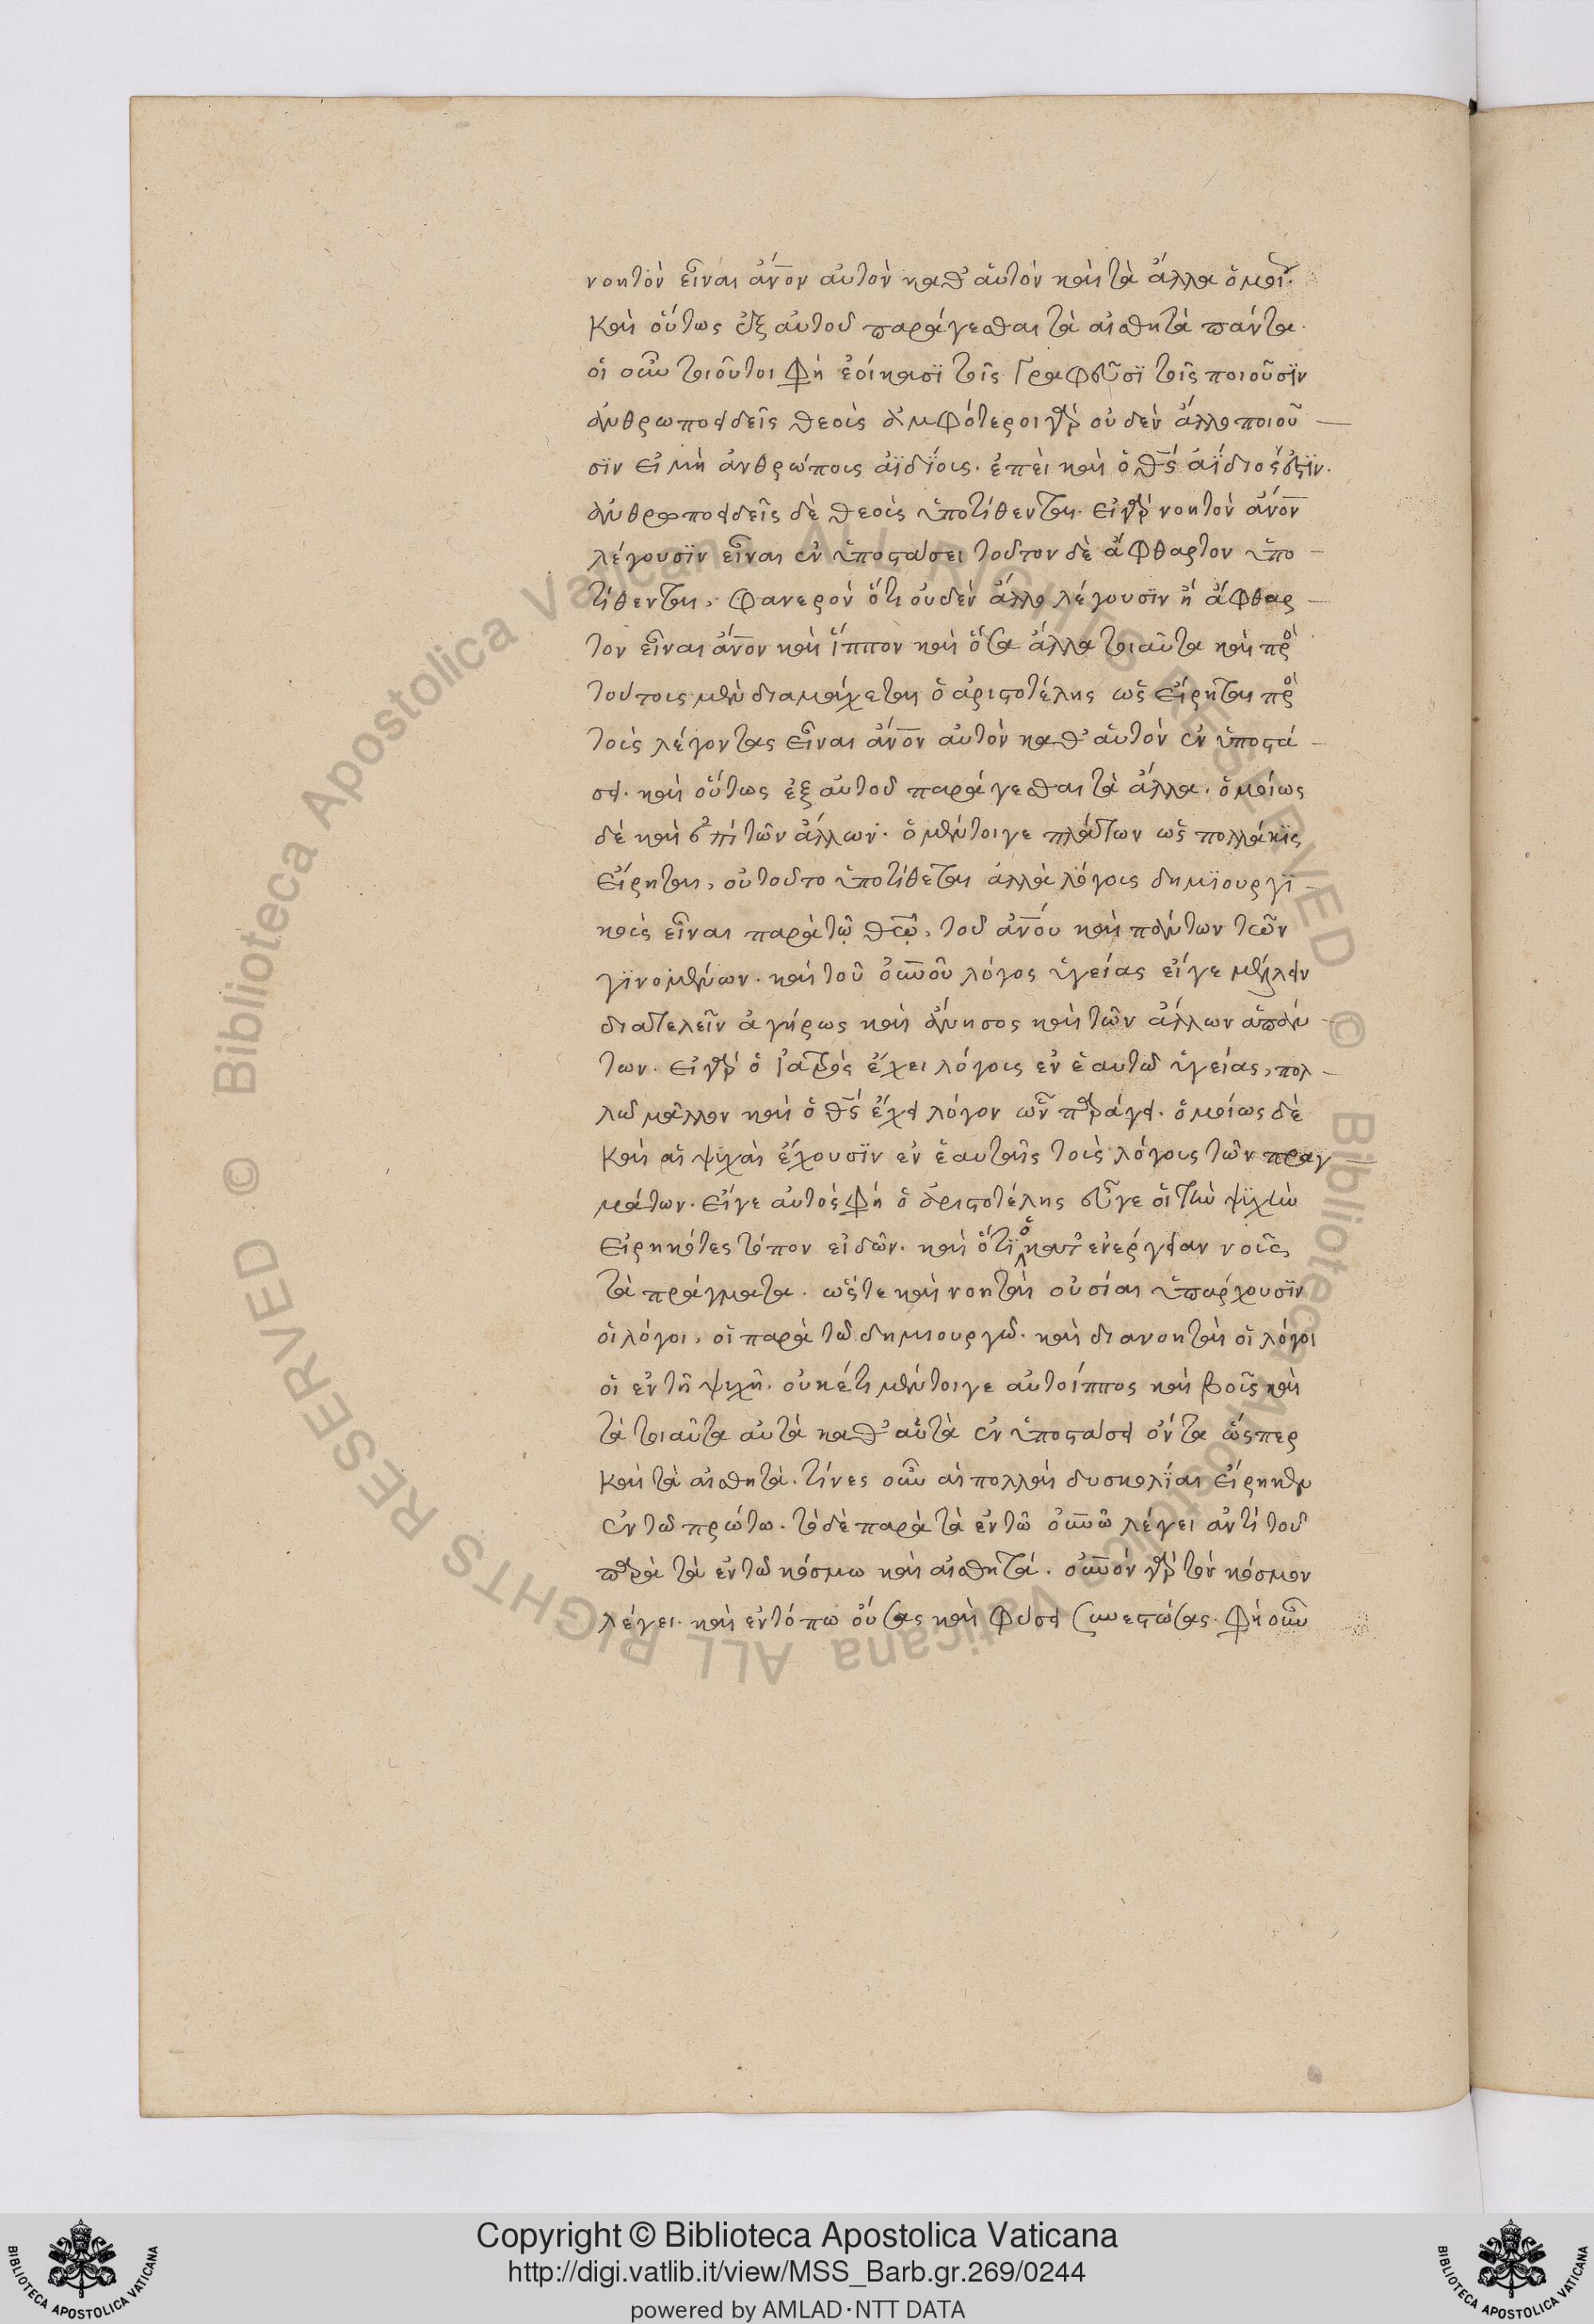 νοητὸν εἶναι ἄνον αὐτὸν καθ' αὑτὸν καὶ τὰ ἄλλα ὁμοί.
καὶ οὕτως ἐξ αὐτοῦ παράγεσθαι τὰ αἰσθητὰ πάντα.
οἱ οὖν τοιοῦτοι φὴ ἐοίκασϊ τοῖς γραφεῦσϊ τοῖς ποιοῦσϊν
ἀνθρωποειδεῖς θεοὺς ἀμφότεροι γὰρ οὐδὲν ἄλλο ποιοῦ
σϊν εἰ μὴ ἀνθρώπους ἀϊδΐους. ἐπεὶ καὶ ὁ θς ἀΐδιός ἐστϊν.
ἀνθρωποειδεῖς δὲ θεοὺς ὑποτίθενται. εἰ γὰρ νοητὸν ἄνον
λέγουσϊν εἶναι ἐν ὑποστάσει τοῦτον δὲ ἄφθαρτον ὑπο
τίθενται, φανερὸν ὅτι οὐδὲν ἄλλο λέγουσϊν ἢ ἄφθαρ
τον εἶναι ἄνον καὶ ἵππον καὶ ὅσα ἄλλα τοιαῦτα καὶ πρὸ
τούτοις μὲν διαμάχεται ὁ ἀριστοτέλης ὡς εἴρηται πρὸ
τοὺς λέγοντας εἶναι ἄνον αὐτὸν καθ' αὑτὸν ἐν ὑποστά
σει. καὶ οὕτως ἐξ αὐτοῦ παράγεσθαι τὰ ἄλλα. ὁμοίως
δὲ καὶ ἐπὶ τῶν ἄλλων. ὁ μέντοιγε πλάτων ὡς πολλάκϊς
εἴρηται, οὐ τοῦτο ὑποτίθεται ἀλλὰ λόγους δημϊουργϊ
κοὺς εἶναι παρὰ τῷ θῶ, τοῦ ἀνου καὶ πάντων τῶν
γϊνομένων. καὶ τοῦ οὐνοῦ λόγος ὑγείας εἴγε μέλλειν
διατελεῖν ἀγήρως καὶ ἄνησος καὶ τῶν ἄλλων ἁπάν
των. εἰ γὰρ ὁ ἰατρὸς ἔχει λόγους ἐν ἑαυτῶ ὑγείας, πολ
λῶ μᾶλλον καὶ ὁ θς ἔχει λόγον ὧν παράγει. ὁμοίως δὲ
καὶ αἱ ψϋχαὶ ἔχουσϊν ἐν ἑαυταῖς τοὺς λόγους τῶν πραγ
μάτων. εἴγε αὐτὸς φὴ ὁ ἀριστοτέλης εὖγε οἱ τὴν ψϋχὴν
εἰρηκότες τόπον εἰδῶν. καὶ ὅτϊ ὁ κατ' ἐνέργειαν νοῦς
τὰ πράγματα. ὥστε καὶ νοηταὶ οὐσίαι ὑπάρχουσϊν
οἱ λόγοι, οἱ παρὰ τῶ δημιουργῶ. καὶ διανοηταὶ οἱ λόγοι
οἱ ἐν τῇ ψυχῇ. οὐκέτι μέντοιγε αὐτοίππος καὶ βοῦς καὶ
τὰ τοιαῦτα αὐτὰ καθ' αὑτὰ ἐν ὑποστάσει ὄντα ὥσπερ
καὶ τὰ αἰσθητὰ. τίνες οὖν αἱ πολλαὶ δυσκολΐαι εἴρηκεν
ἐν τῶ πρώτω. τὸ δὲ παρὰ τὰ ἐν τῶ οὐνῶ λέγει ἀντὶ τοῦ
παρὰ τὰ ἐν τῶ κόσμω καὶ αἰσθητά. οὐνὸν γὰρ τὸν κόσμον
λέγει. καὶ ἐν τόπω οὔσας καὶ φύσει συνεστώσας. φὴ οὖν
Copyright © Biblioteca Apostolica Vaticana
http://digi.vatlib.it/view/MSS_Barb.gr.269/0244
powered by AMLAD·NTT DATA